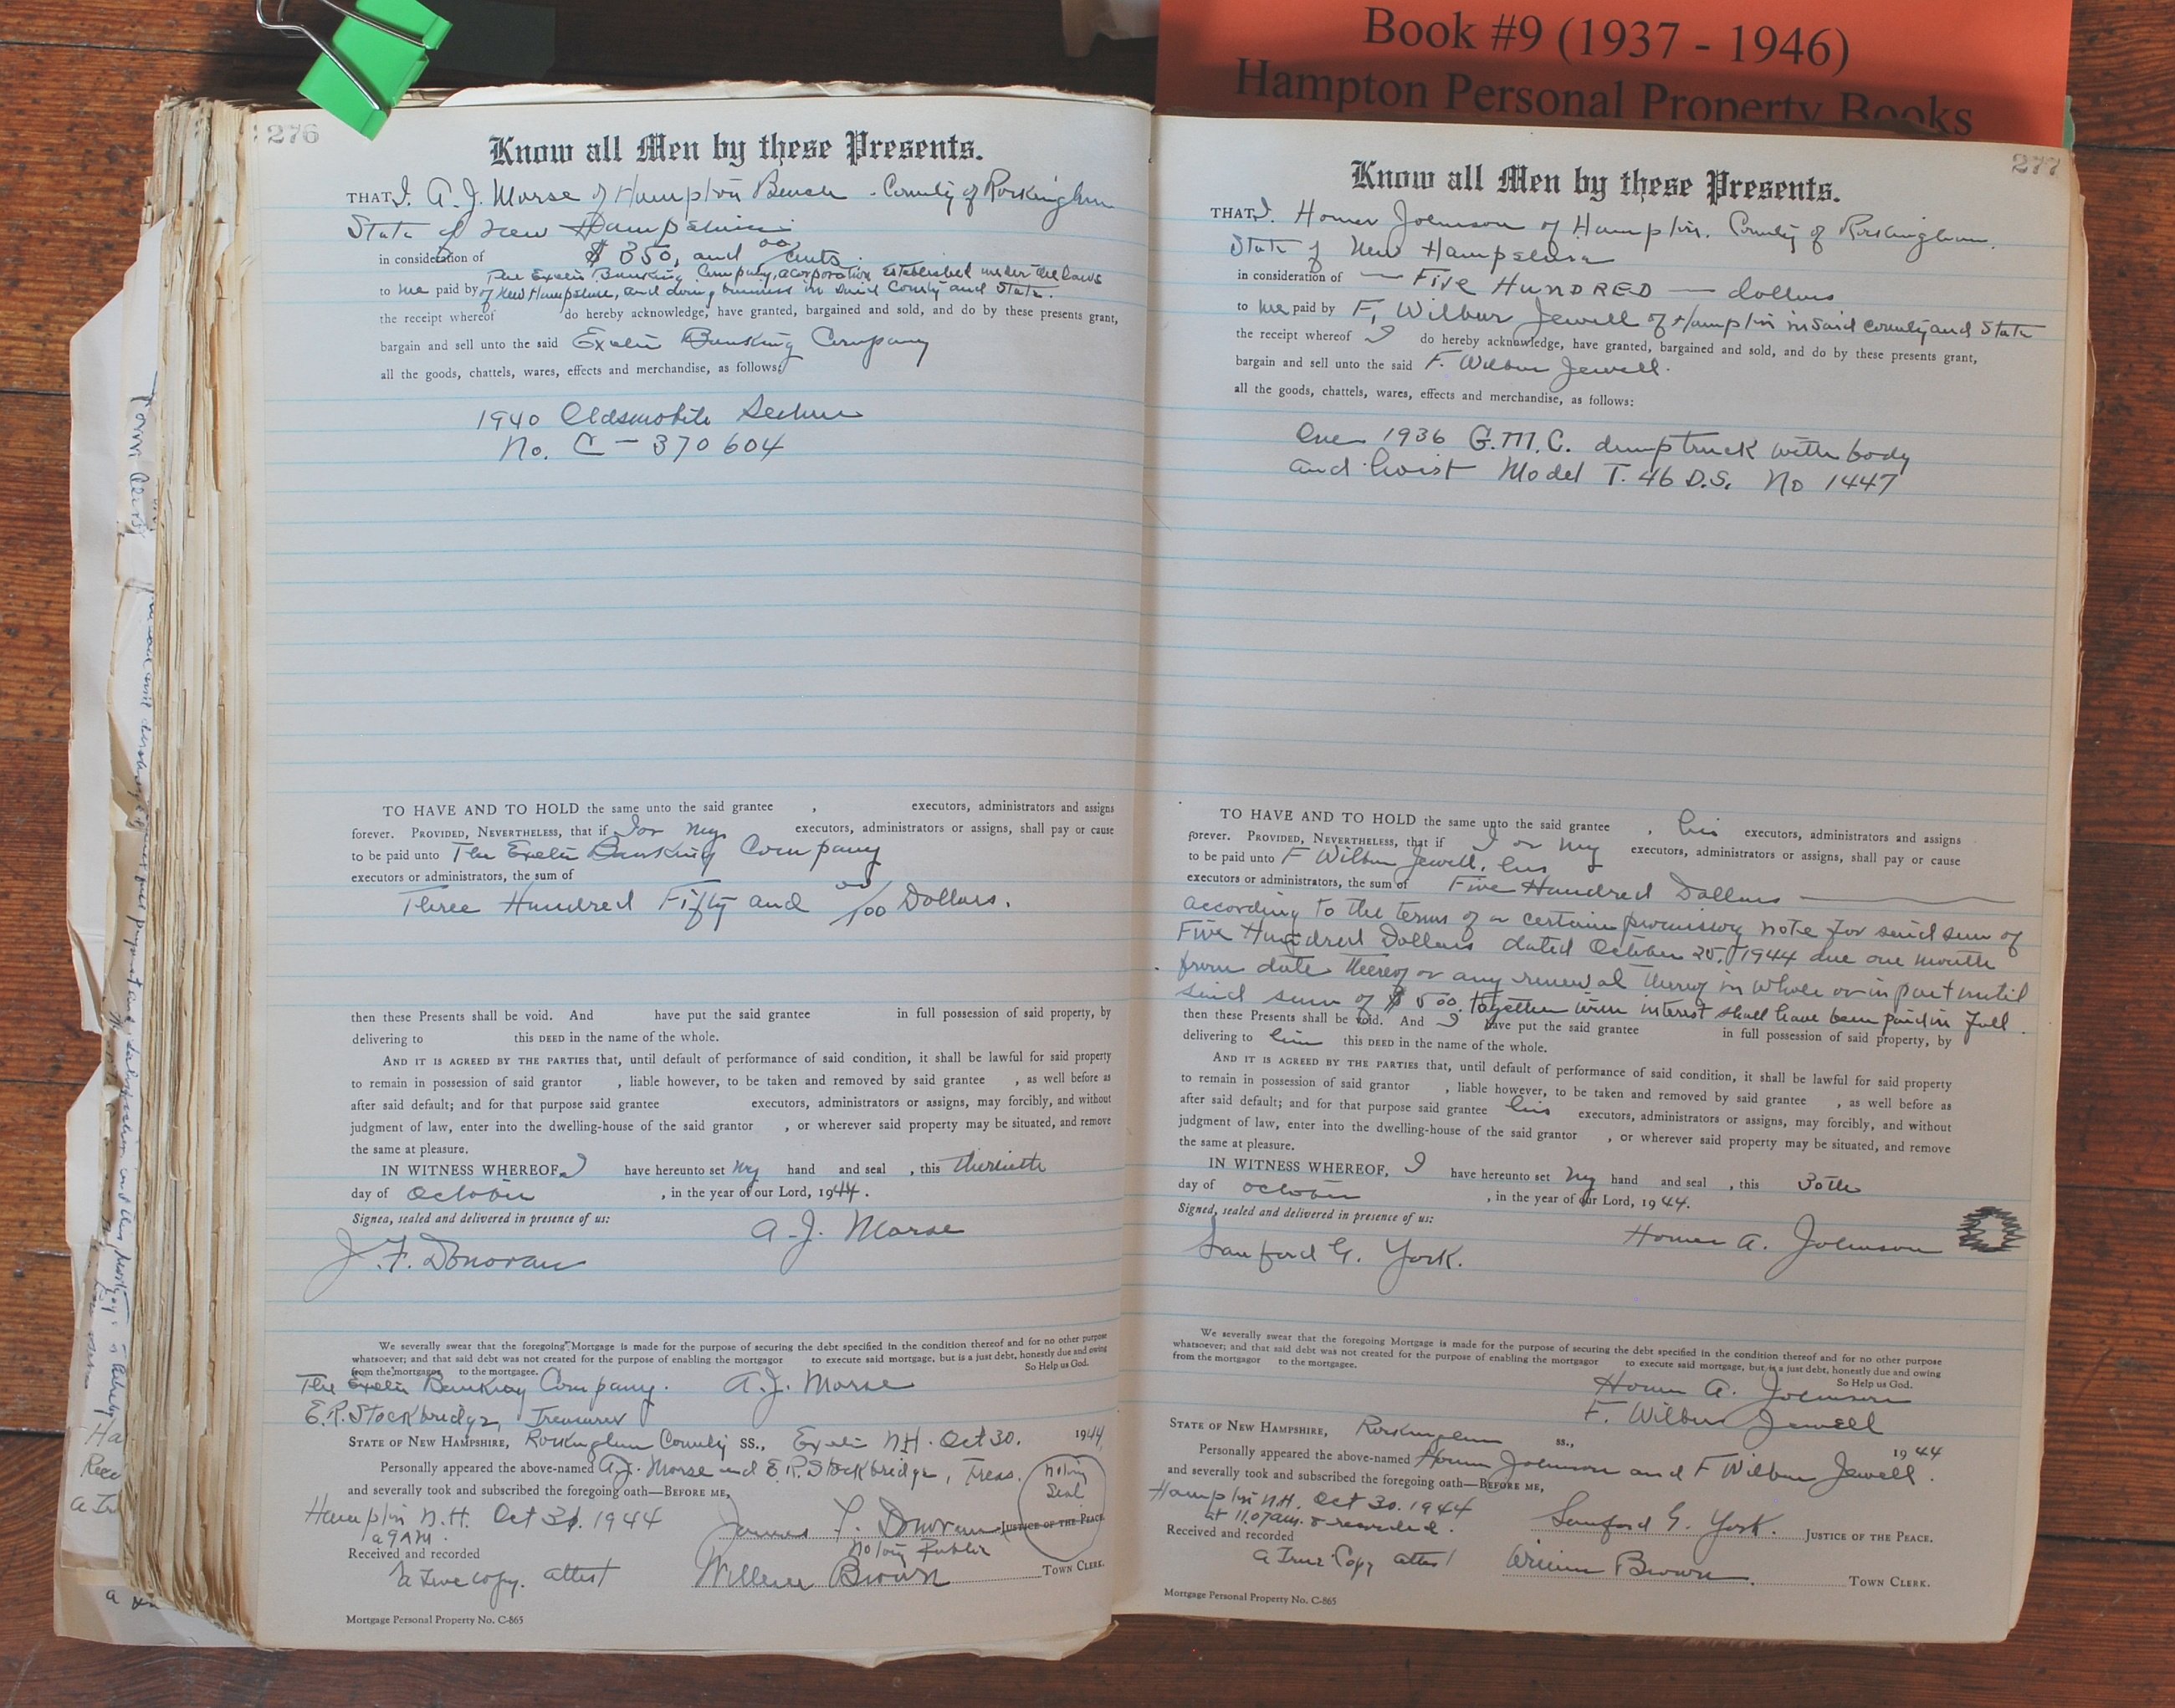 Book #9 (1937 - 1946)
Hampton Personal Property Books
276
Know all Men by these Presents.
THAT I. A. J. Morse of Hampton Beach - County of Rockingham
State of New Hampshire
in consideration of $ 350, and 00/ cents.
to me paid by The Exeter Banking Company, a corporation established under the laws
of New Hampshire, and doing business in said County and State.
the receipt whereof do hereby acknowledge, have granted, bargained and sold, and do by these presents grant,
bargain and sell unto the said Exeter Banking Company
all the goods, chattels, wares, effects and merchandise, as follows:
1940 Oldsmobile Sedan
No. C - 370604
TO HAVE AND TO HOLD the same unto the said grantee , executors, administrators and assigns
forever. PROVIDED, NEVERTHELESS, that if I or my executors, administrators or assigns, shall pay or cause
to be paid unto The Exeter Banking Company
executors or administrators, the sum of
Three Hundred Fifty and 00/100 Dollars.
then these Presents shall be void. And have put the said grantee in full possession of said property, by
delivering to this DEED in the name of the whole.
AND IT IS AGREED BY THE PARTIES that, until default of performance of said condition, it shall be lawful for said property
to remain in possession of said grantor , liable however, to be taken and removed by said grantee , as well before as
after said default; and for that purpose said grantee executors, administrators or assigns, may forcibly, and without
judgment of law, enter into the dwelling-house of the said grantor , or wherever said property may be situated, and remove
the same at pleasure.
IN WITNESS WHEREOF, I have hereunto set my hand and seal , this thirtieth
day of October , in the year of our Lord, 1944.
Signed, sealed and delivered in presence of us:
A. J. Morse
J. F. Donovan
We severally swear that the foregoing Mortgage is made for the purpose of securing the debt specified in the condition thereof and for no other purpose
whatsoever; and that said debt was not created for the purpose of enabling the mortgagor to execute said mortgage, but is a just debt, honestly due and owing
from the mortgagor to the mortgagee. So Help us God.
The Exeter Banking Company. A. J. Morse
E. R. Stockbridge, Treasurer
STATE OF NEW HAMPSHIRE, Rockingham County SS., Exeter N.H. Oct 30. 1944
Personally appeared the above-named A. J. Morse and E. R. Stockbridge, Treas.
and severally took and subscribed the foregoing oath—BEFORE ME,
Notary
Seal
Hampton N.H. Oct 31. 1944
James F. Donovan JUSTICE OF THE PEACE.
a 9 AM.
Notary Public
Received and recorded
a true copy. attest William Brown TOWN CLERK.
Mortgage Personal Property No. C-865
277
Know all Men by these Presents.
THAT I. Homer Johnson of Hampton. County of Rockingham.
State of New Hampshire
in consideration of — FIVE HUNDRED — dollars
to me paid by F. Wilbur Jewell of Hampton in said county and State
the receipt whereof I do hereby acknowledge, have granted, bargained and sold, and do by these presents grant,
bargain and sell unto the said F. Wilbur Jewell.
all the goods, chattels, wares, effects and merchandise, as follows:
One 1936 G.M.C. dump truck with body
and hoist Model T. 46 D.S. No 1447
TO HAVE AND TO HOLD the same unto the said grantee , his executors, administrators and assigns
forever. PROVIDED, NEVERTHELESS, that if I or my executors, administrators or assigns, shall pay or cause
to be paid unto F Wilbur Jewell, his
executors or administrators, the sum of Five Hundred Dollars —
according to the terms of a certain promissory note for said sum of
Five Hundred Dollars dated October 25, 1944 due one month
from date thereof or any renewal thereof in whole or in part until
said sum of $ 500. together with interest shall have been paid in full.
then these Presents shall be void. And I have put the said grantee in full possession of said property, by
delivering to him this DEED in the name of the whole.
AND IT IS AGREED BY THE PARTIES that, until default of performance of said condition, it shall be lawful for said property
to remain in possession of said grantor , liable however, to be taken and removed by said grantee , as well before as
after said default; and for that purpose said grantee his executors, administrators or assigns, may forcibly, and without
judgment of law, enter into the dwelling-house of the said grantor , or wherever said property may be situated, and remove
the same at pleasure.
IN WITNESS WHEREOF, I have hereunto set my hand and seal , this 30th
day of October , in the year of our Lord, 1944.
Signed, sealed and delivered in presence of us:
Homer A. Johnson
Sanford G. York.
We severally swear that the foregoing Mortgage is made for the purpose of securing the debt specified in the condition thereof and for no other purpose
whatsoever; and that said debt was not created for the purpose of enabling the mortgagor to execute said mortgage, but is a just debt, honestly due and owing
from the mortgagor to the mortgagee. So Help us God.
Homer A. Johnson
F. Wilbur Jewell
STATE OF NEW HAMPSHIRE, Rockingham SS., 1944
Personally appeared the above-named Homer Johnson and F Wilbur Jewell.
and severally took and subscribed the foregoing oath—BEFORE ME,
Hampton N.H. Oct 30. 1944
at 11.07 am. & recorded.
Sanford G. York. JUSTICE OF THE PEACE.
Received and recorded
a True Copy attest William Brown. TOWN CLERK.
Mortgage Personal Property No. C-865